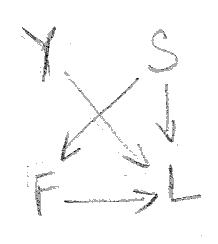 Y S
F L